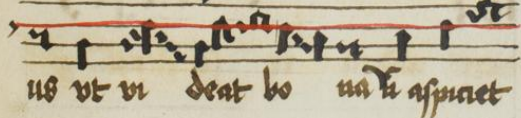 us vt vi deat bo nā ñ aspiciet